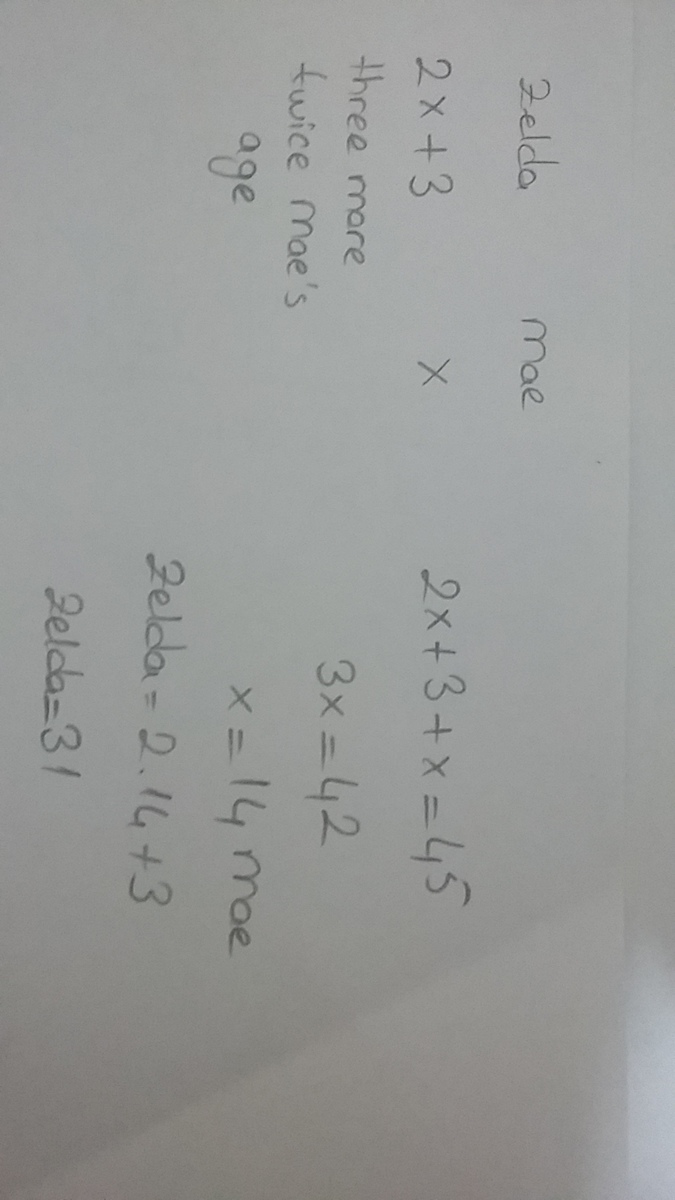 Zelda mae
2x+3 x
three more
twice mae's
age
2x+3+x=45
3x=42
x=14 mae
Zelda=2.14+3
Zelda=31